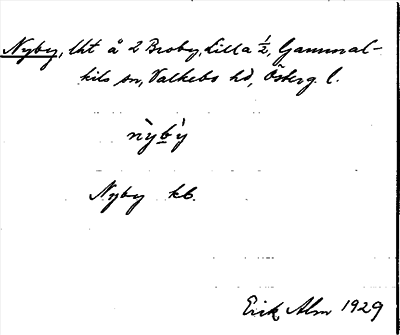 Nyby, lht å 2 Broby, Lilla ½, Gammal-
kils sn, Valkebo hd, Österg. l.
nỳbỳ
Nyby kb.
Erik Alm 1929